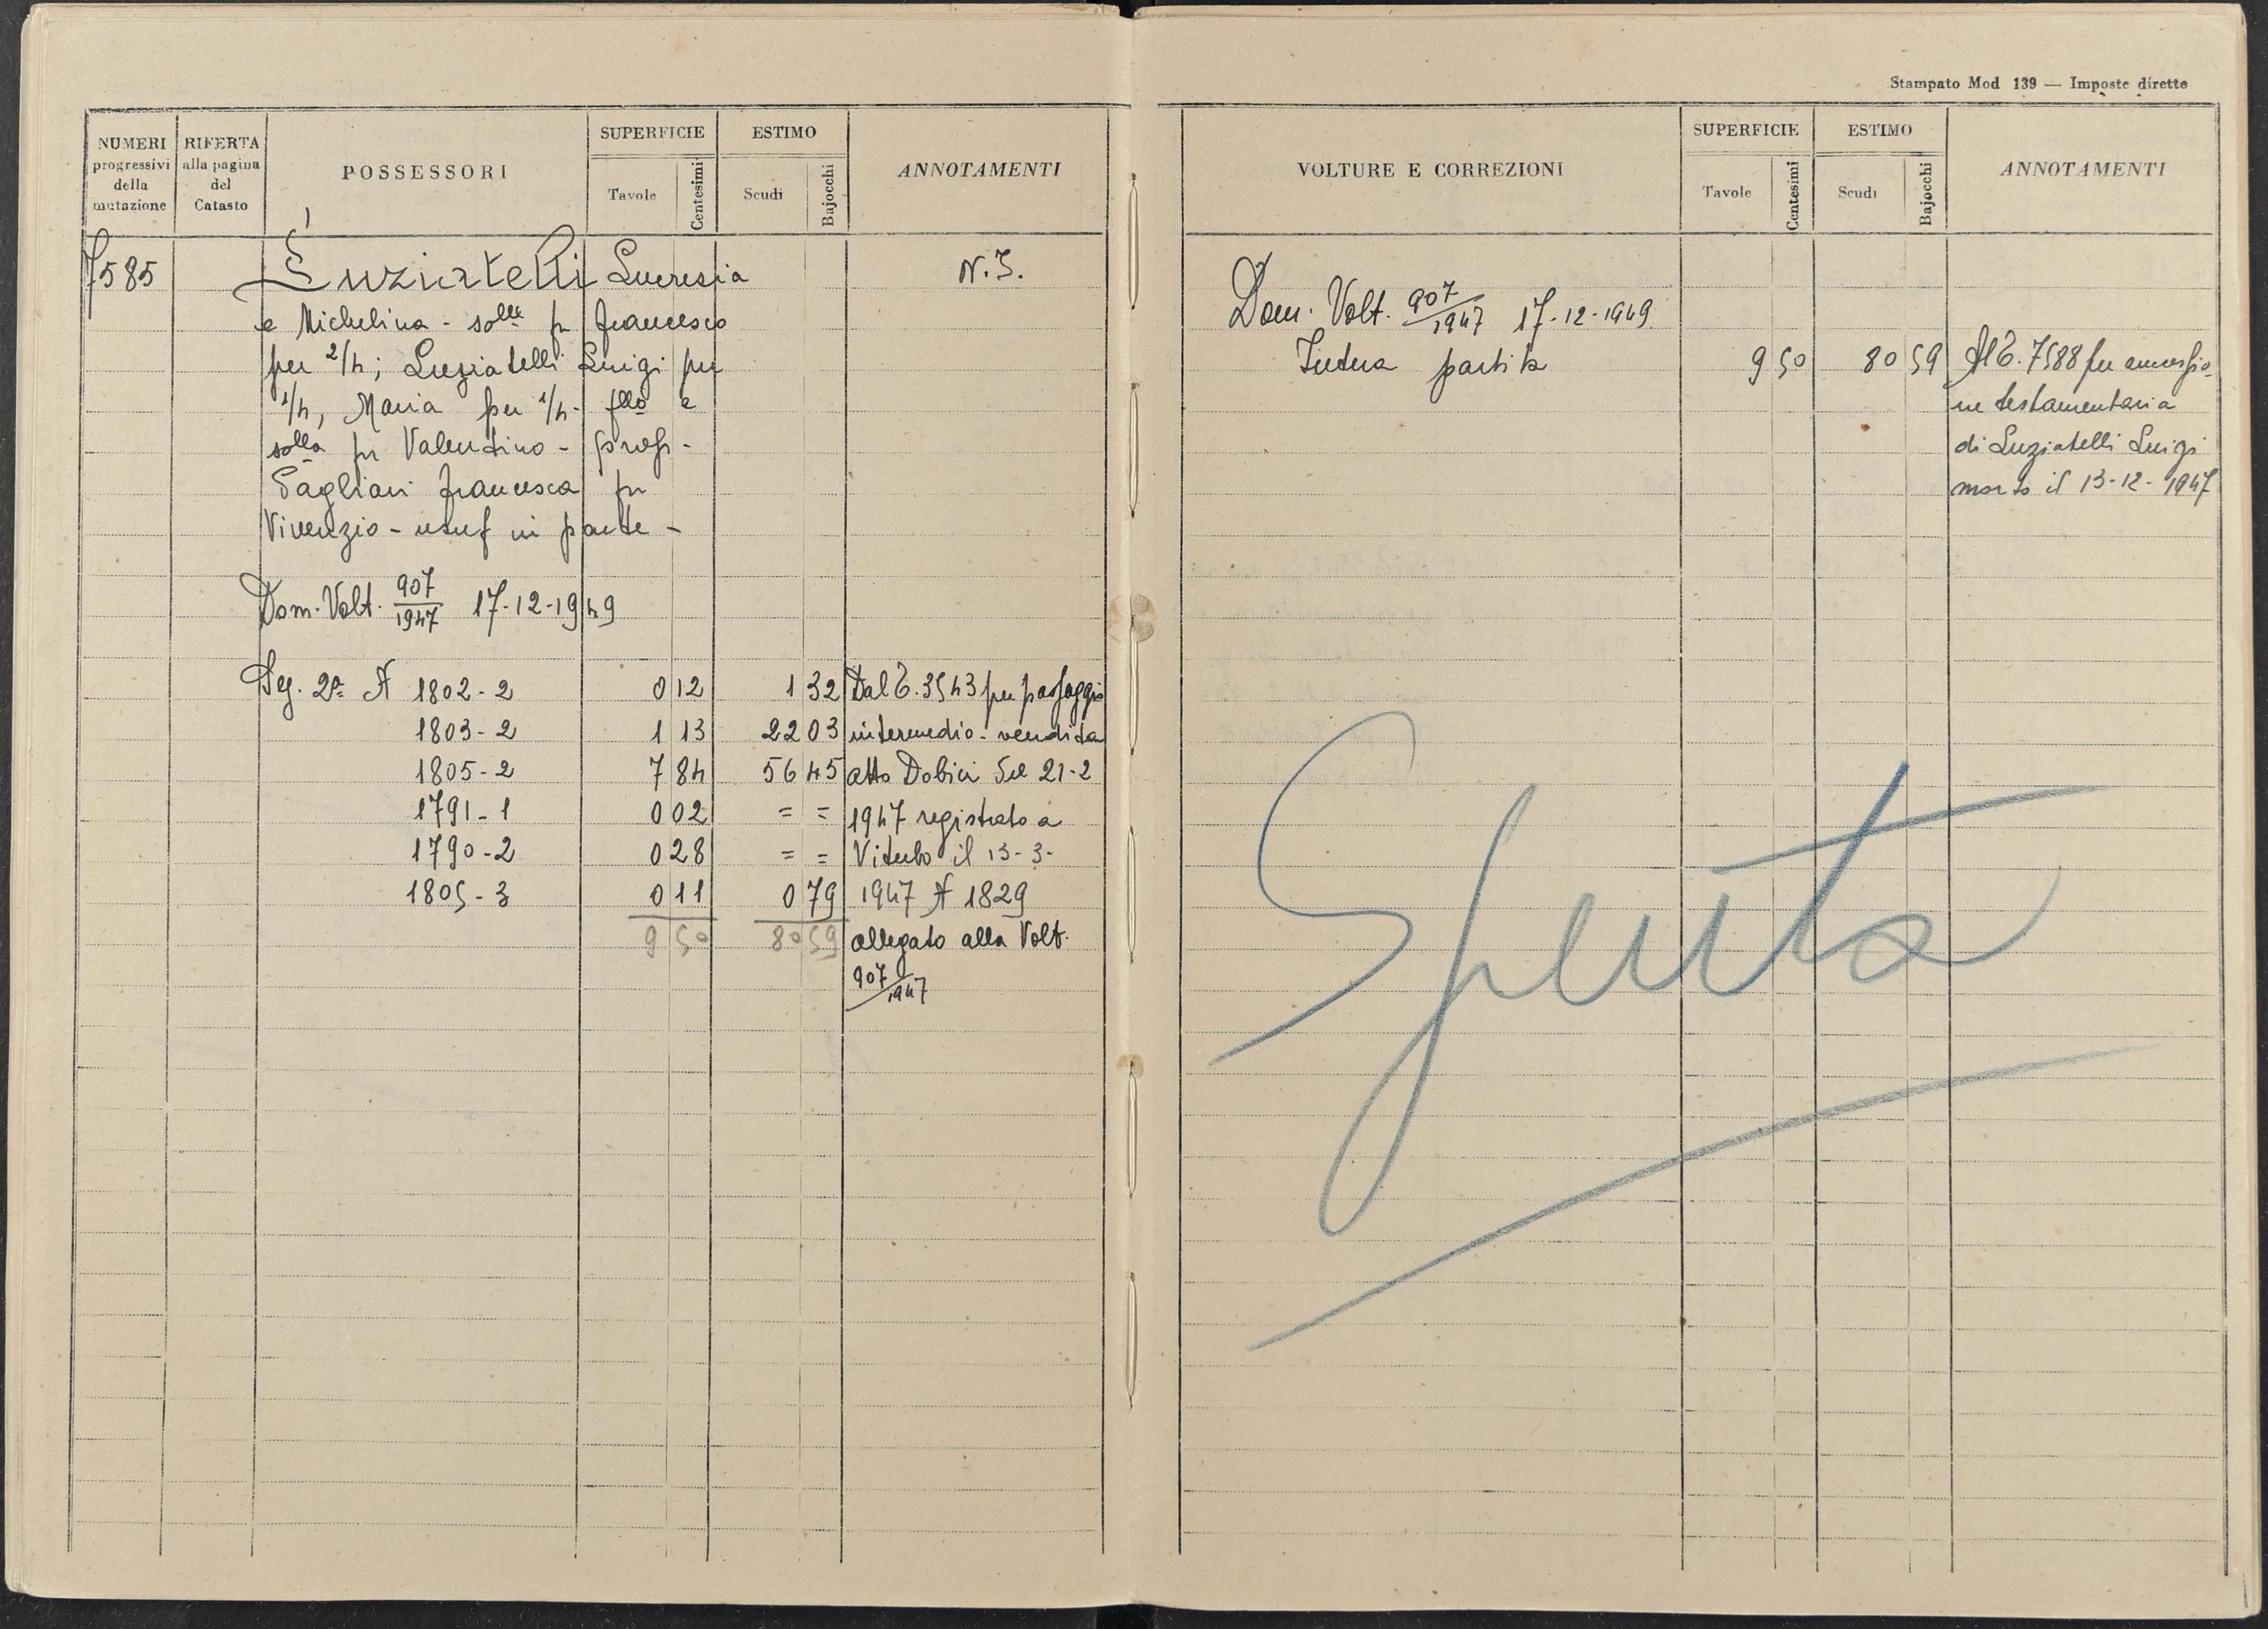 Stampato Mod 139 — Imposte dirette
NUMERI progressivi della mutazione
RIFERTA alla pagina del Catasto
POSSESSORI
SUPERFICIE
Tavole
Centesimi
ESTIMO
Scudi
Bajocchi
ANNOTAMENTI
7585 Luziatelli Lucresia N. I.
e Michelina - solle fu Francesco
per 2/4; Luziatelli Luigi per
1/4, Maria per 1/4 - fllo e
solla fu Valentino - propr -
Pagliari Francesca fu
Vivenzio - usuf in parte -
Dom. Volt. 907/1947 17-12-1949
Sez. 2a A 1802-2 0 12 1 32 Dal C. 3543 per passaggio
1803-2 1 13 22 03 intermedio - vendita
1805-2 7 84 56 45 atto Dobici del 21-2
1791-1 0 02 = = 1947 registrato a
1790-2 0 28 = = Viterbo il 13-3-
1805-3 0 11 0 79 1947 N 1829
9 50 80 59 allegato alla Volt.
907/1947
VOLTURE E CORREZIONI
SUPERFICIE
Tavole
Centesimi
ESTIMO
Scudi
Bajocchi
ANNOTAMENTI
Dom. Volt. 907/1947 17-12-1949
Intera partita 9 50 80 59 Al C. 7588 per successio-
ne testamentaria
di Luziatelli Luigi
morto il 13-12-1947
Spenta